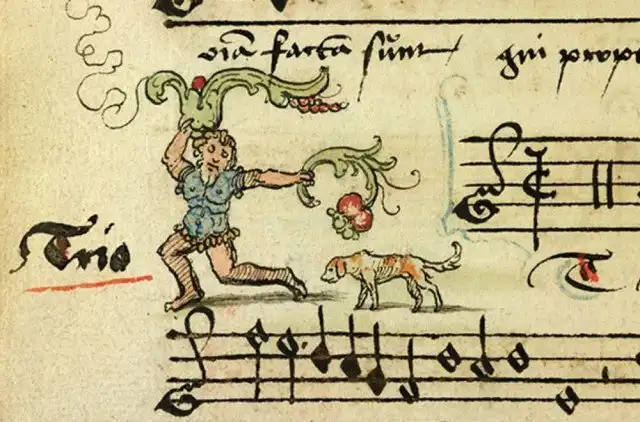 oīa facta sūnt qui prope
Trio
T